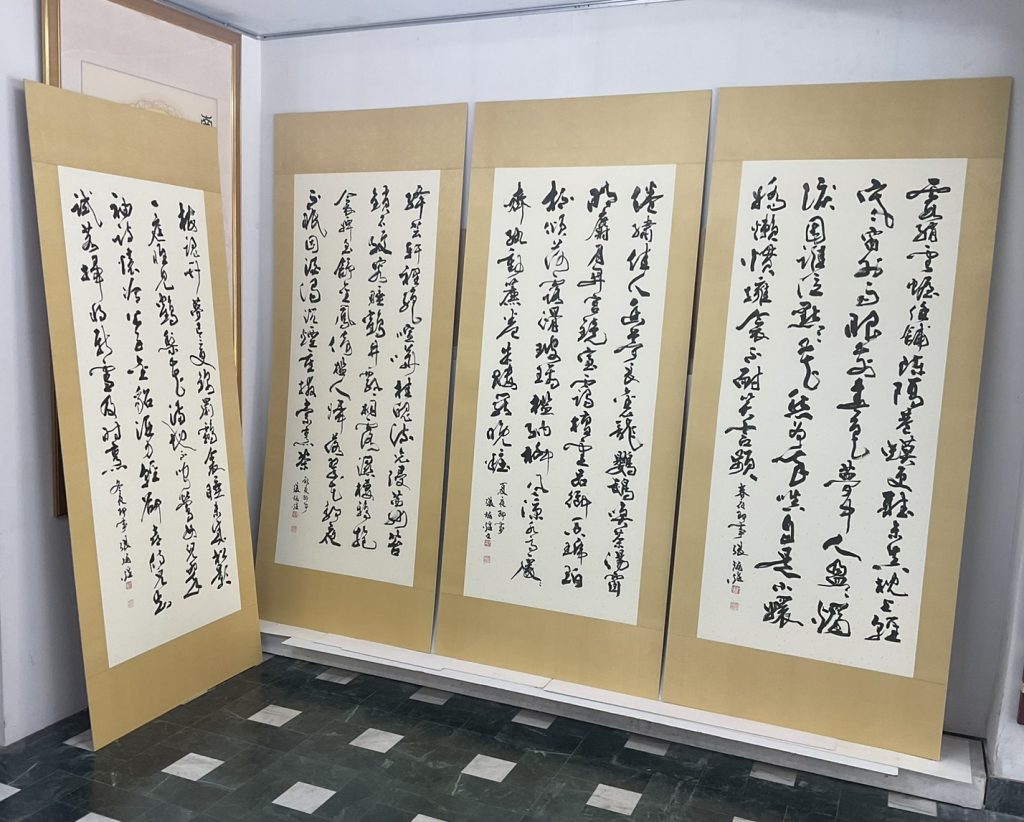 霞綃雲幄任鋪陳隔巷蟆更聽未真枕上輕
寒窗外雨眼前春色夢中人盈盈燭
淚因誰泣點點花愁为我嗔自是小鬟
嬌懶慣擁衾不耐笑言頻
春夜即事 張振
倦繡佳人幽夢長金籠鸚鵡喚茶湯窗
明麝月開宮鏡室靄檀雲品御香琥珀
杯傾荷露滑玻璃檻納柳風涼水亭處處
齊紈動簾卷朱樓罷晚妝
夏夜即事 張振
絳芸軒裡絕喧嘩桂魄流光浸茜紗苔
鎖石紋容睡鶴井飄桐露濕棲鴉抱
衾婢至舒金鳳倚檻人歸落翠花靜夜
不眠因酒渴沉煙重撥索烹茶
秋夜即事 張振
梅魂竹夢已三更錦罽鷫衾睡未成松影
一庭惟見鶴梨花滿地不聞鶯女兒翠
袖詩懷冷公子金貂酒力輕卻喜侍兒知
試茗掃將新雪及時烹
冬夜即事 張振